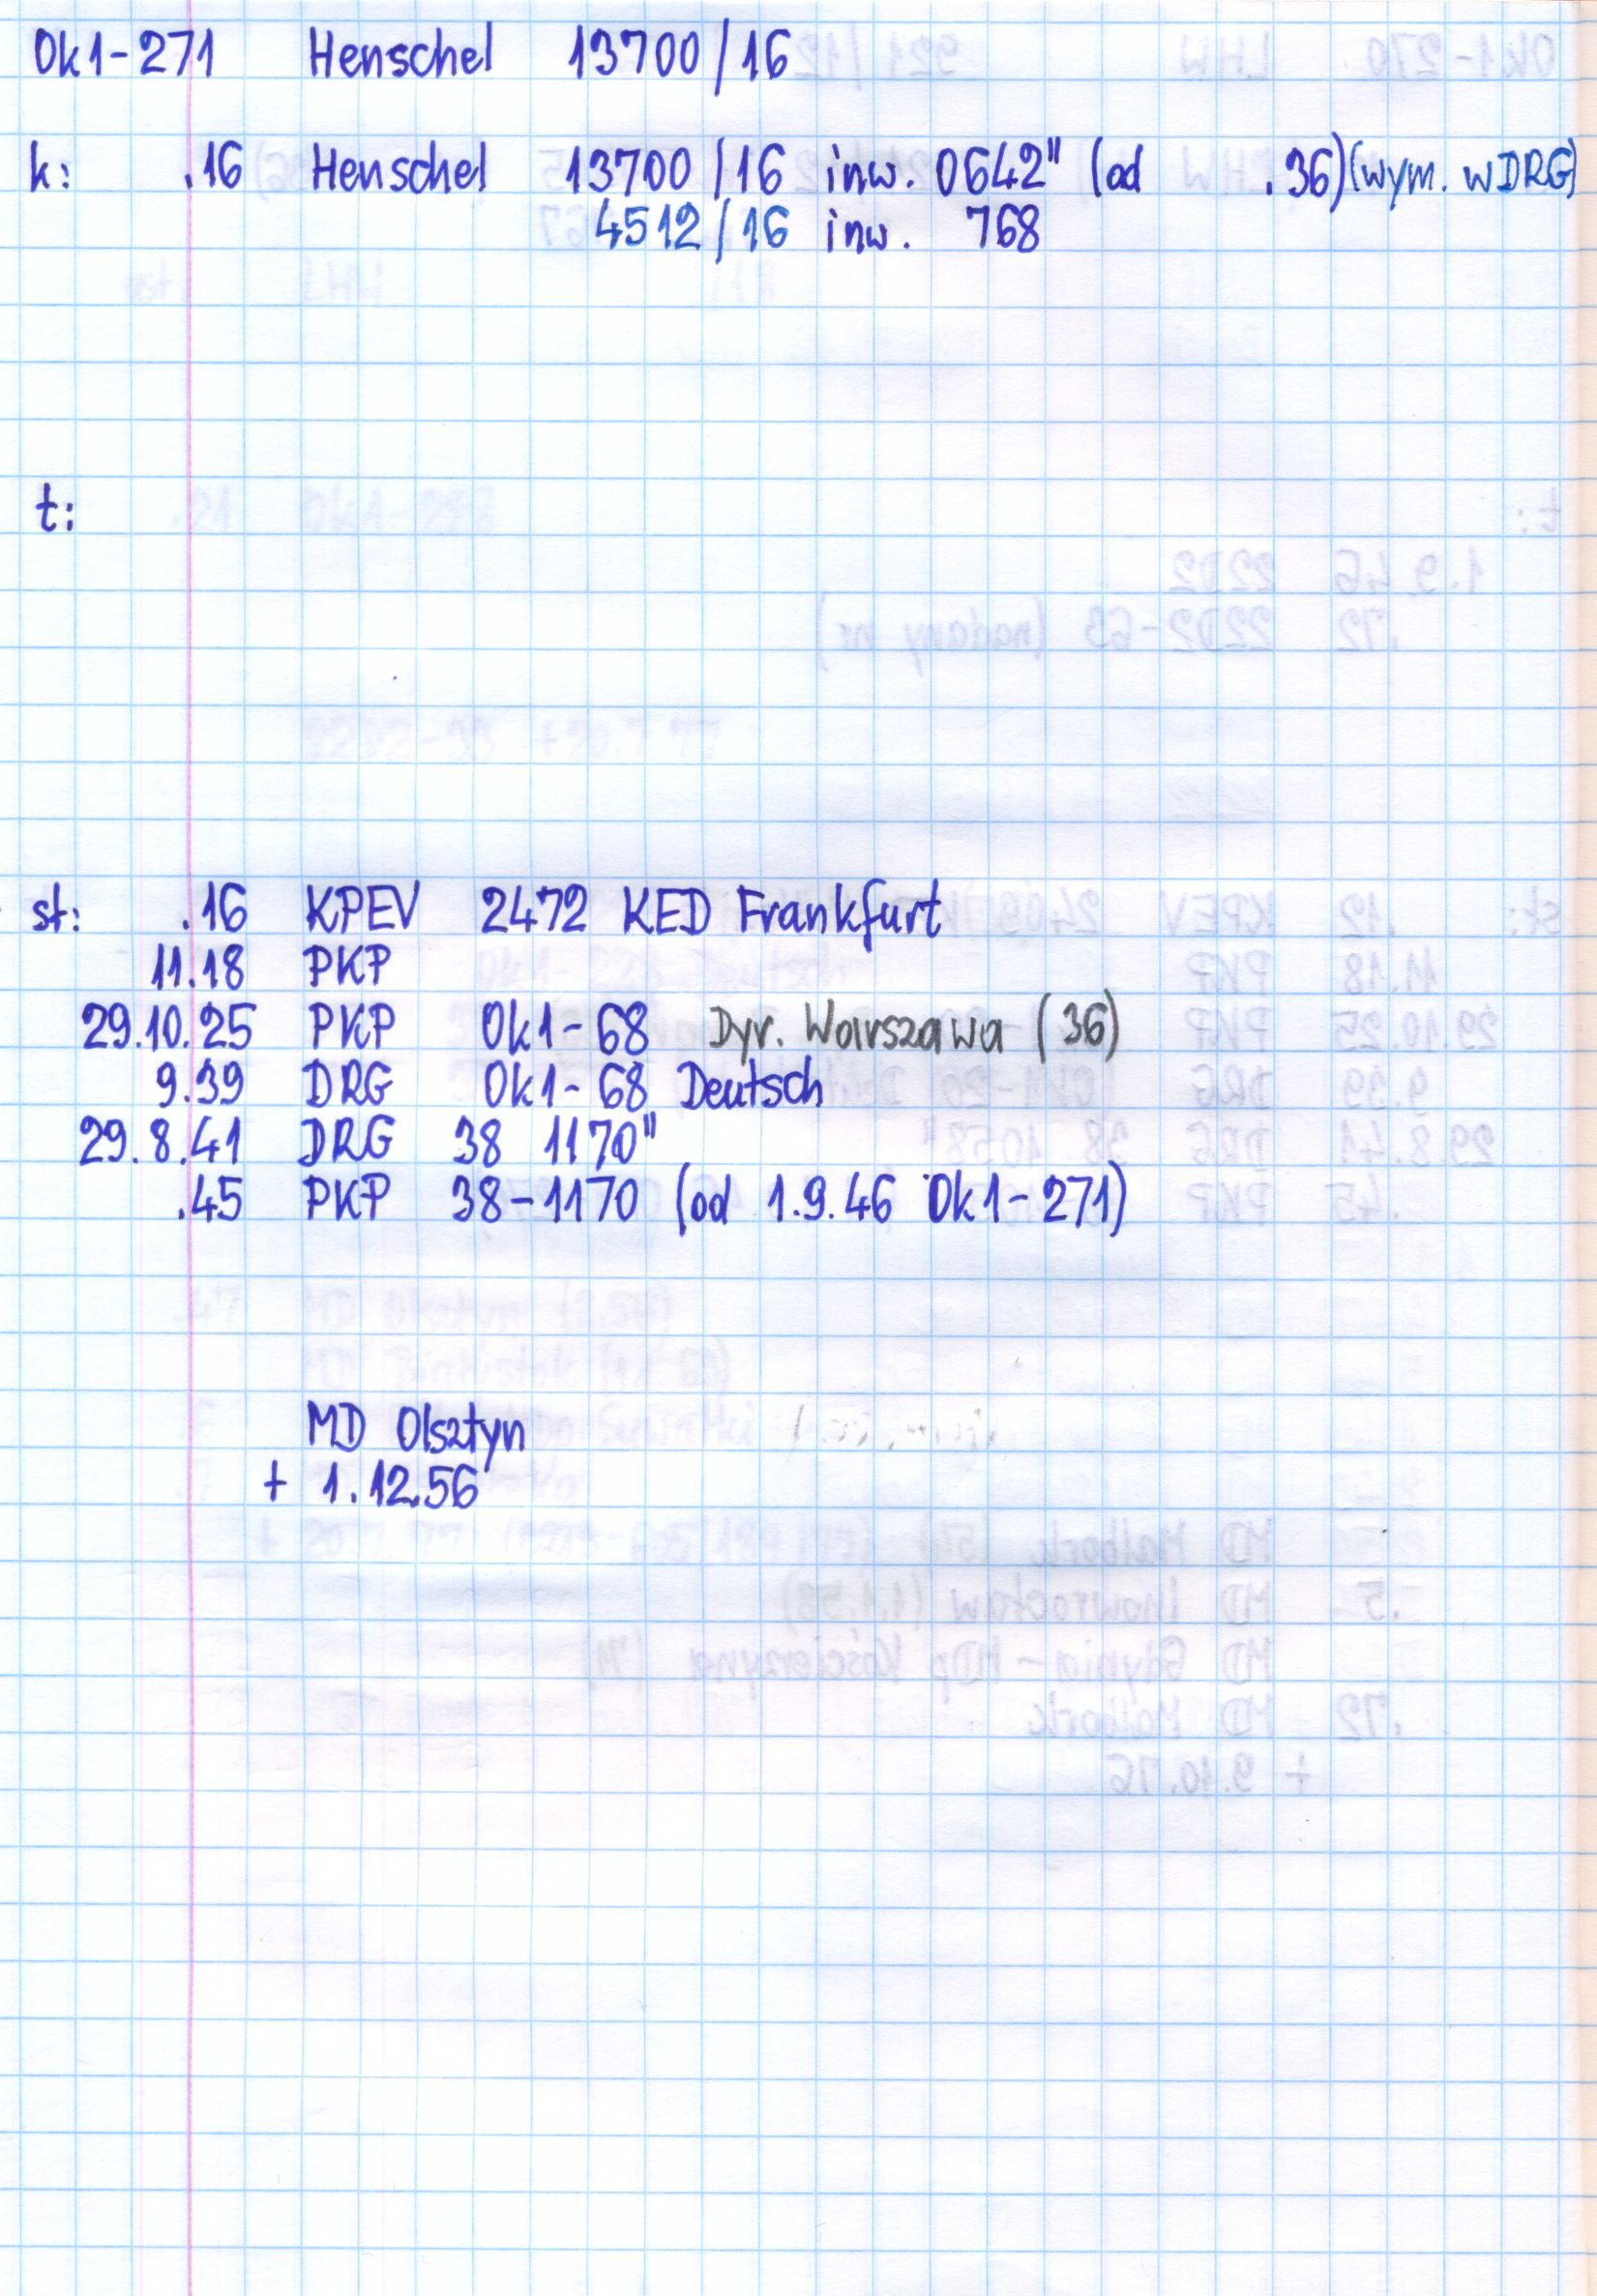 Ok1-271 Henschel 13700/16
k: .16 Henschel 13700/16 inw. 0642" (od .36)(wym. w DRG)
4512/16 inw. 768
t:
st: .16 KPEV 2472 KED Frankfurt
11.18 PKP
29.10.25 PKP Ok1-68 Dyr. Warszawa (36)
9.39 DRG Ok1-68 Deutsch
29.8.41 DRG 38 1170"
.45 PKP 38-1170 (od 1.9.46 Ok1-271)
MD Olsztyn
+ 1.12.56